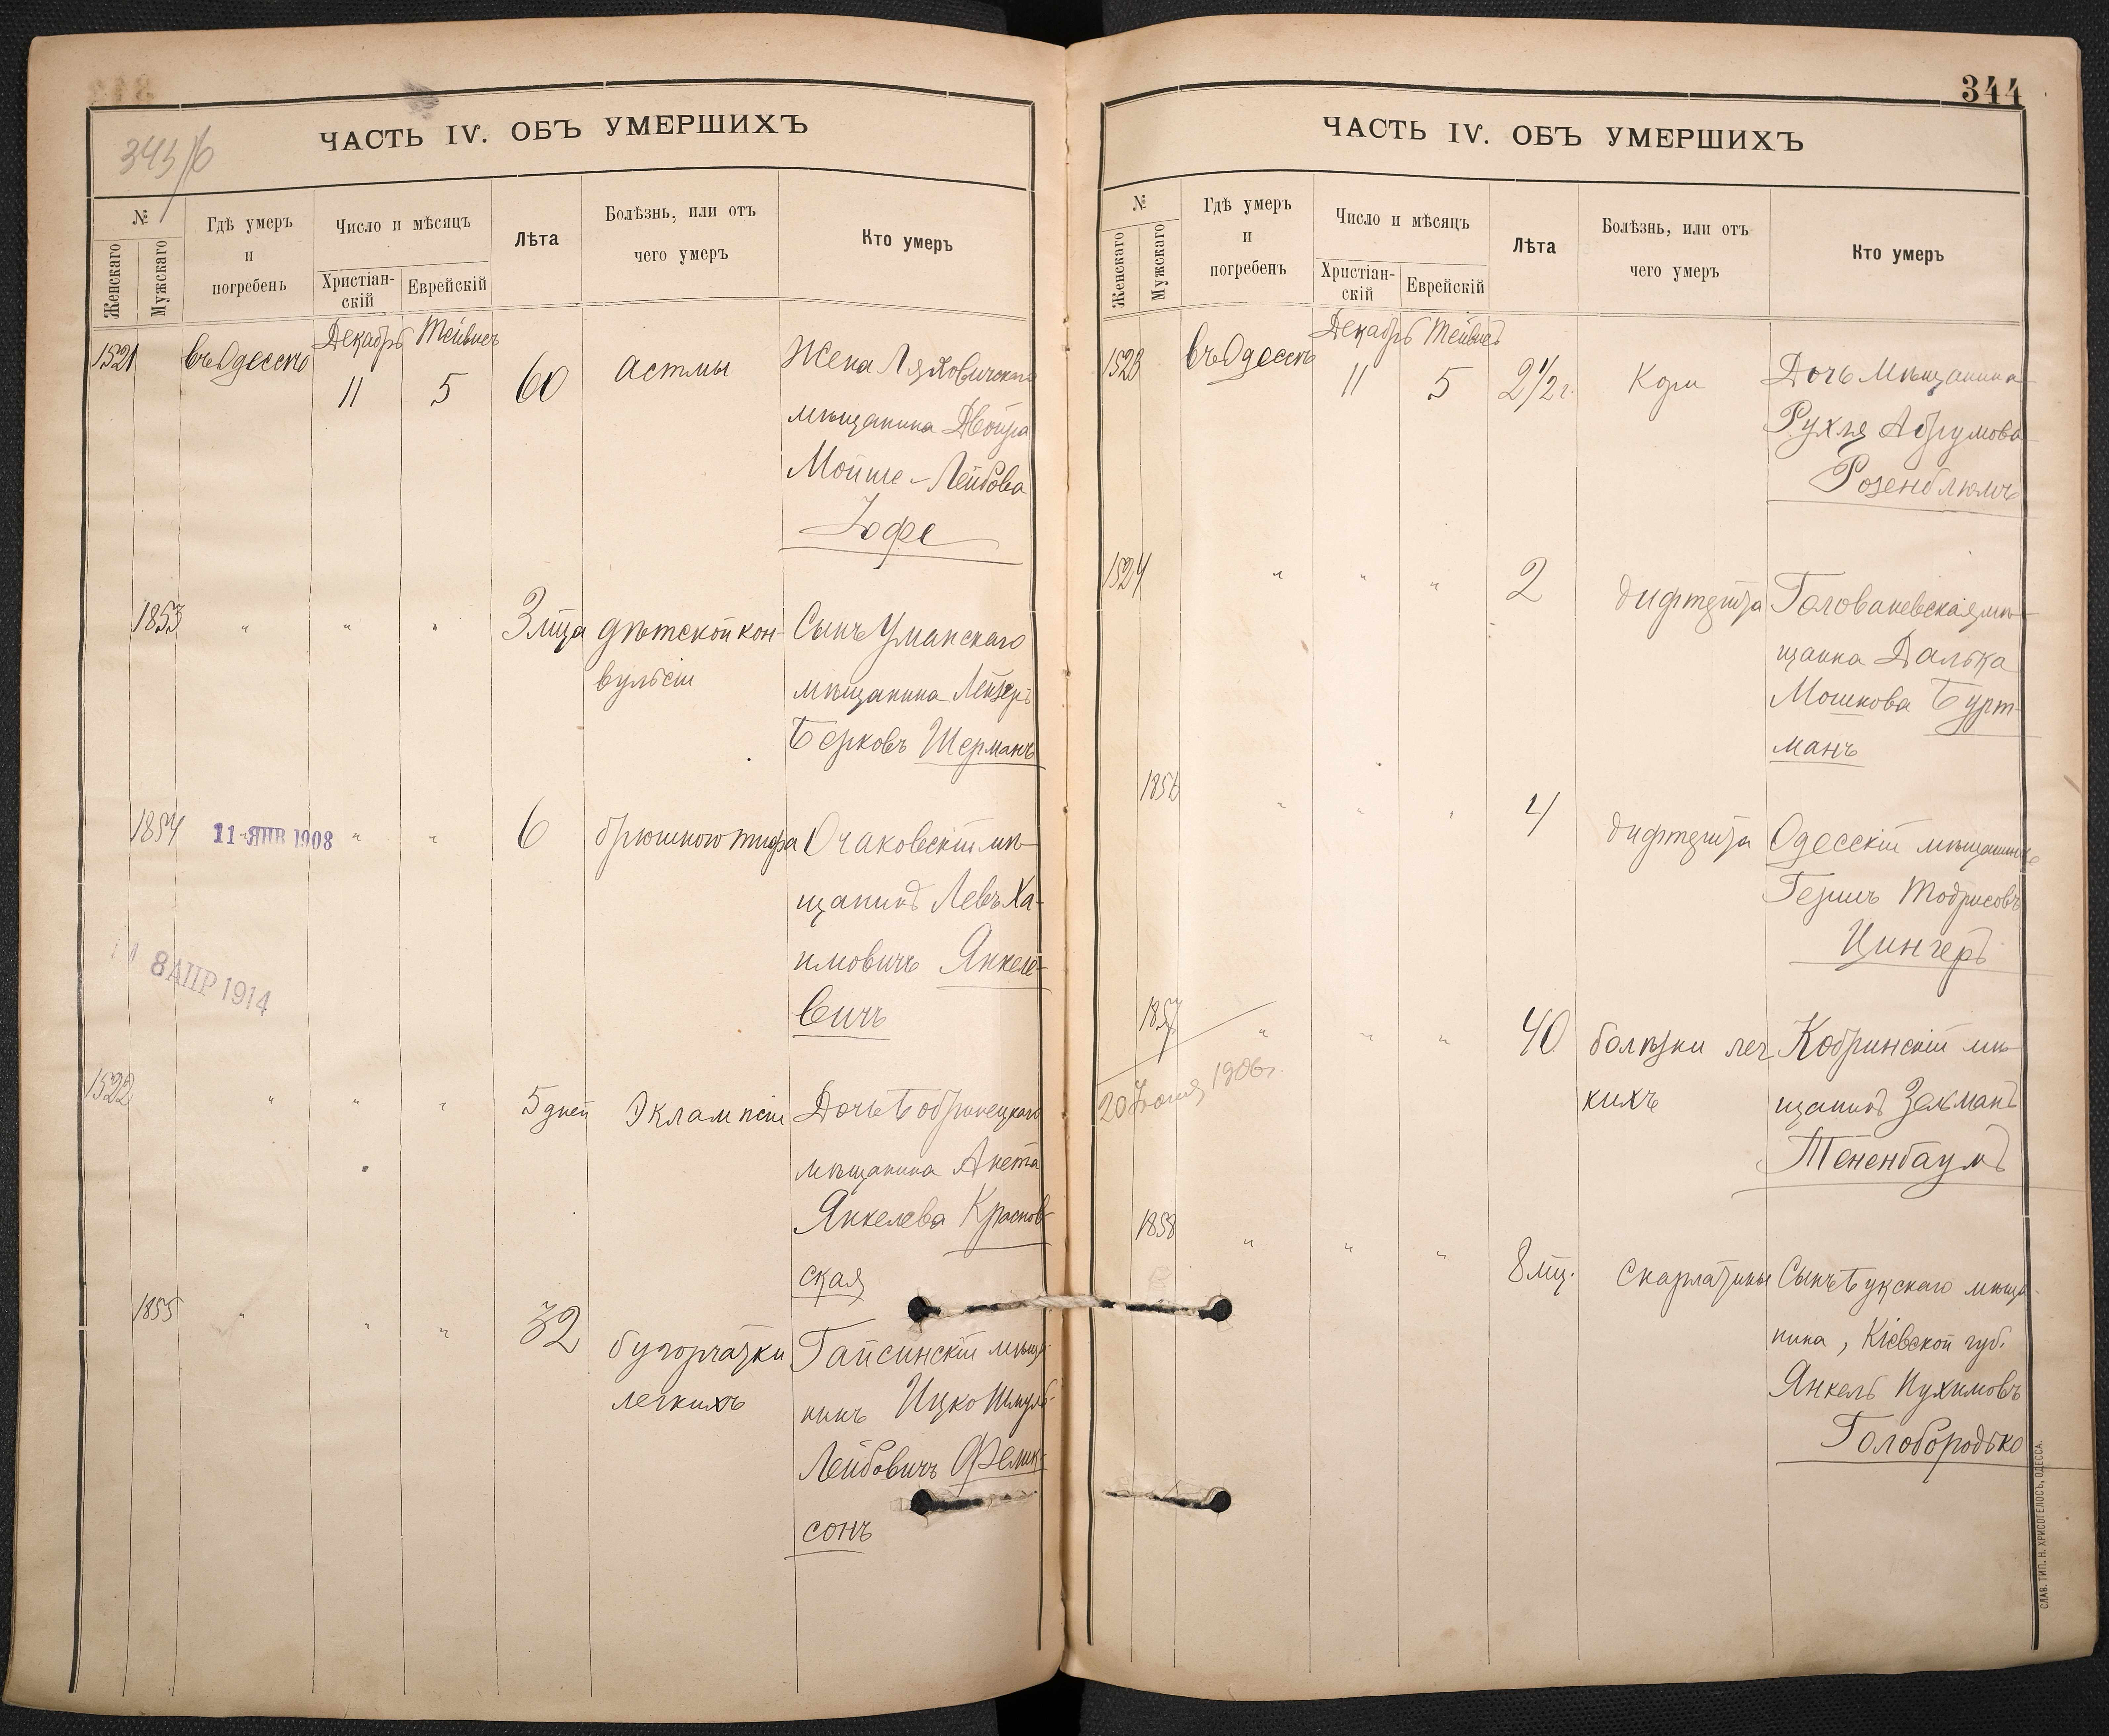 343/б
ЧАСТЬ IV. ОБЪ УМЕРШИХЪ
№
Женскаго
Мужскаго
Гдѣ умеръ
и
погребенъ
Число и мѣсяцъ
Христіан-
скій
Еврейскій
Лѣта
Болѣзнь, или отъ
чего умеръ
Кто умеръ
Декабрь Тейвесъ
1521 въ Одессѣ 11 5 60 астмы Жена Ляховичскаго
мѣщанина Двойра
Мойше-Лейбова
Іофе
1853 " " " 3 мца дѣтской кон- Сынъ Уманскаго
вульсіи мѣщанина Лейзеръ
Берковъ Шерманъ
1854 " " " 6 брюшного тифа Очаковскій мѣ-
11 ЯНВ 1908
щанинъ Левъ Ха-
имовичъ Янкеле-
вичъ
8 АПР 1914
1522 " " " 5 дней Эклампсіи Дочь Бобринецкаго
мѣщанина Анета
Янкелева Краснов-
ская
1855 " " " 32 бугорчатки Гайсинскій мѣща-
легкихъ нинъ Ицко Шмуль-
Лейбовичъ Феликс-
сонъ
344
ЧАСТЬ IV. ОБЪ УМЕРШИХЪ
№
Женскаго
Мужскаго
Гдѣ умеръ
и
погребенъ
Число и мѣсяцъ
Христіан-
скій
Еврейскій
Лѣта
Болѣзнь, или отъ
чего умеръ
Кто умеръ
Декабрь Тейвесъ
1523 въ Одессѣ 11 5 2 1/2 г. Кори Дочь мѣщанина
Рухля Абрумова
Розенблюмъ
1524 " " " 2 дифтерита Голованевская мѣ-
щанка Далька
Мошкова Бурт-
манъ
1856 " " " 4 дифтерита Одесскій мѣщанинъ
Гершъ Тодрисовъ
Цингеръ
1857 " " " 40 болѣзни лег Кобринскій мѣ-
кихъ щанинъ Зельманъ
Тененбаумъ
20 Іюня 1906 г.
1858 " " " 8 мц. Скарлатины Сынъ Букскаго мѣща-
нина, Кіевской губ.
Янкель Нухимовъ
Голобородько
СЛАВ. ТИП. Н. ХРИСОГЕЛОСЪ, ОДЕССА.